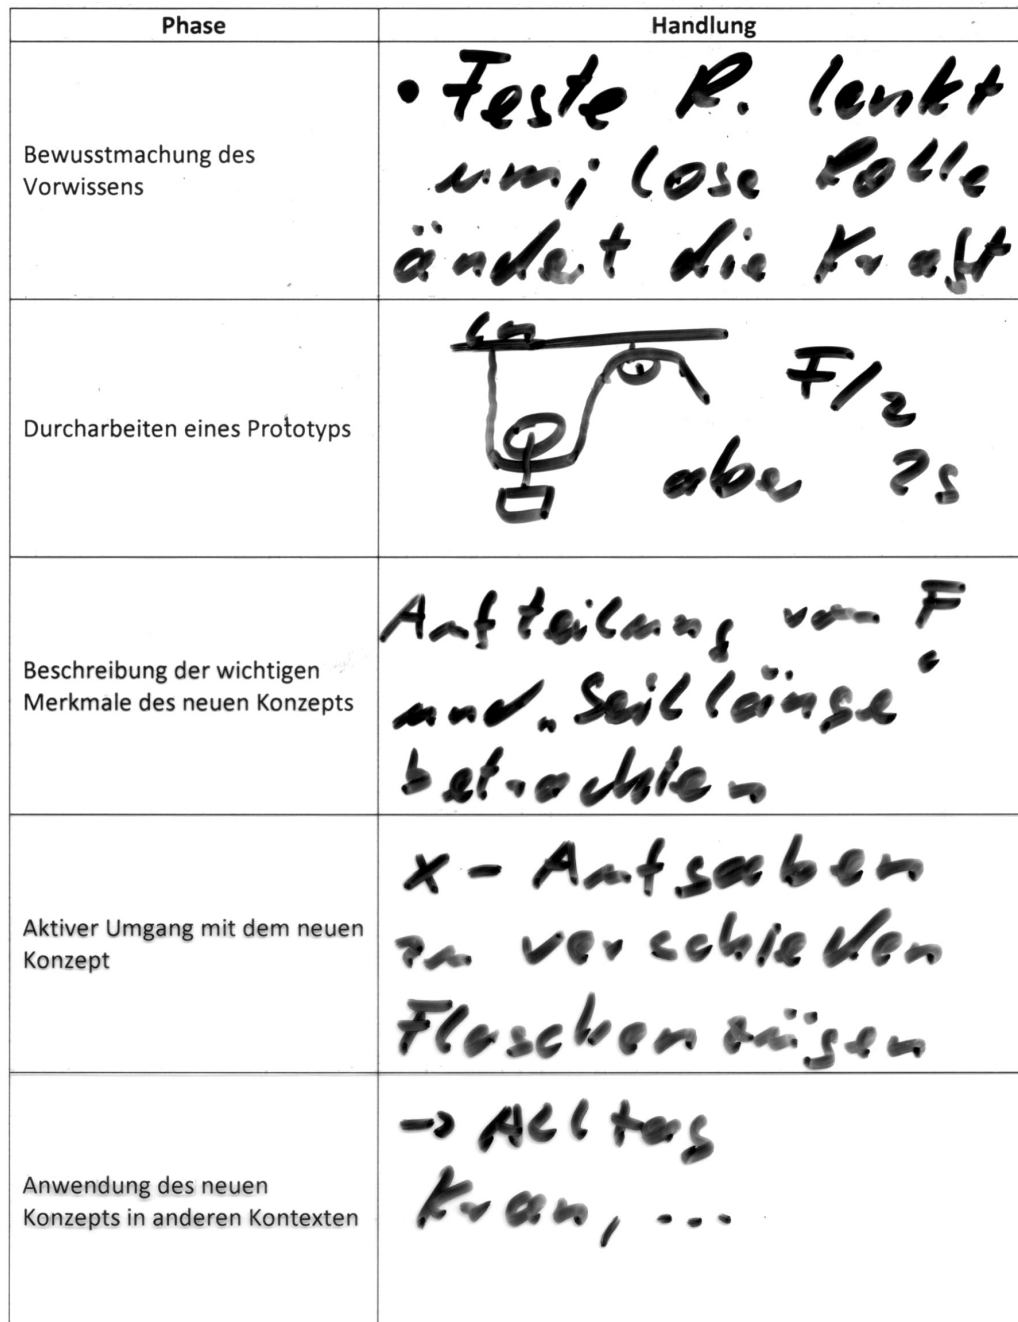 Phase
Handlung
Bewusstmachung des
Vorwissens
• Feste R. lenkt
um; lose Rolle
ändert die Kraft
Durcharbeiten eines Prototyps
F/2
aber 2s
Beschreibung der wichtigen
Merkmale des neuen Konzepts
Aufteilung von F
und "Seillänge"
betrachten
Aktiver Umgang mit dem neuen
Konzept
x - Aufgaben
zu verschieden
Flaschenzügen
Anwendung des neuen
Konzepts in anderen Kontexten
→ Alltag
Kran, ...